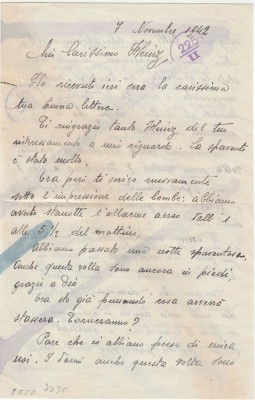 7 Novembre 1942
Mio Carissimo Heinz,
225
II
Ho ricevuto ieri sera la carissima
tua buona lettera.
Ti ringrazio tanto Heinz del tuo
interessamento a mio riguardo. La spavento
è stato molto.
Ora però ti scrivo nuovamente
sotto l'impressione delle bombe: abbiamo
avuto stanotte, l'allarme aereo dall'1
alle 5 1/2 del mattino.
Abbiamo passato una notte spaventosa.
Anche questa volta sono ancora in piedi,
grazie a Dio.
Ora sto già pensando cosa avverrà
stassera. Torneranno?
Pare che ci abbiano preso di mira
noi. I danni anche questa volta sono
2050